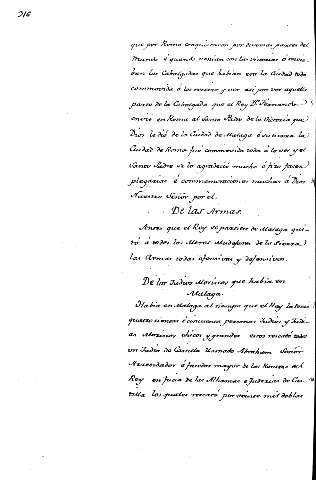 916
que por Roma traquearon por diversas partes del
Mundo é quando venian con las Victorias ó envia-
ban las Cabalgadas que habian era la Ciudad toda
commovida á los recevir y ver asi por ver aquella
parte de la Cabalgada que el Rey Dn. Fernando
envió en Roma al Santo Padre de la Victoria que
Dios le dió de la Ciudad de Malaga é su tierra la
Ciudad de Roma fué commovida toda á lo ver y el
Santo Padre se lo agradeció mucho é fizo facer
plegarias é commemoraciones muchas á Dios
Nuestro Señor por él.
De las Armas.
Antes que el Rey se partiese de Malaga qui-
tó á todos los Moros Mudejares de la Sierra
las Armas todas ofensivas y defensivas.
De los Judios Moriscos que habia en
Malaga.
Habia en Malaga al tiempo que el Rey la tomó
quatrocientas é cincuenta personas Judios y Judi-
as Moriscos chicos y grandes estos rescató todo
un Judio de Castilla llamado Abraham Señor
Arrendador é fasedor mayor de las Rentas del
Rey en fucia de las Alhamas é Juderias de Cas-
tilla los quales rescató por veinte mil doblas